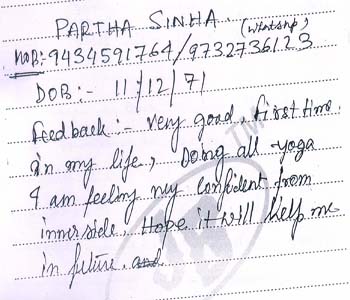 PARTHA SINHA.
(Whatsap)
MOB:- 9434591764/9732736123
DOB:- 11/12/71
Feedback:- very good, first time.
in my life, Doing all yoga
I am feeling my confident from
inner side. Hope it will help me
in future.